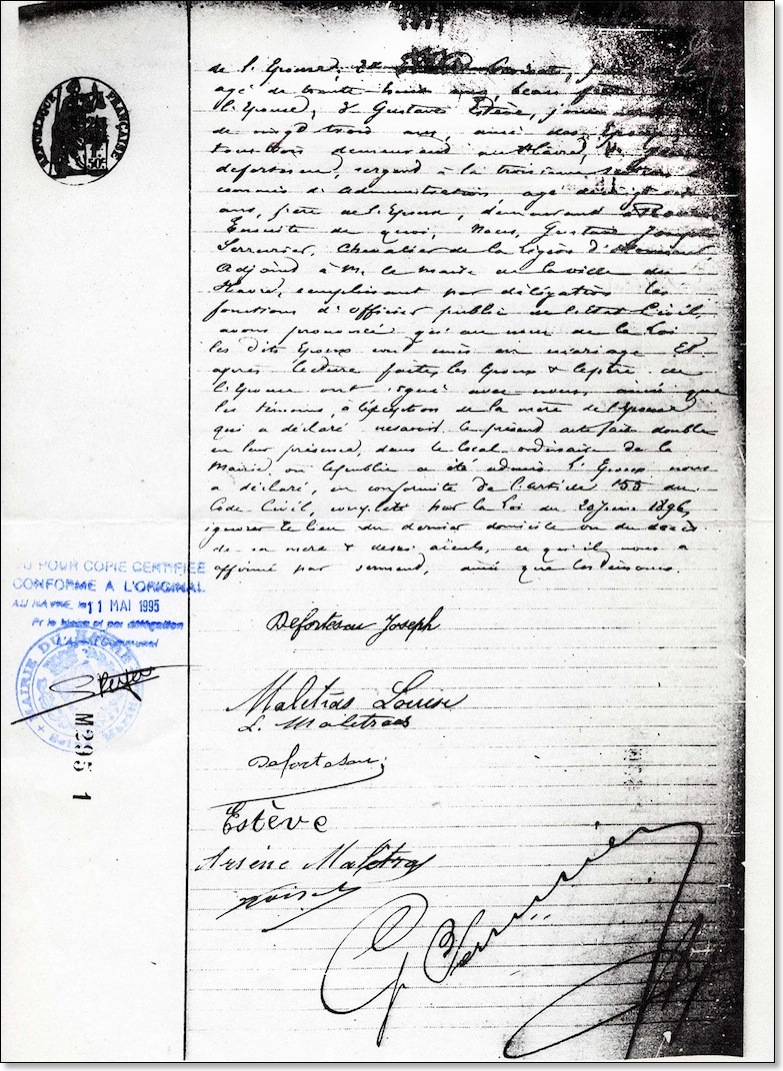 RÉPUBLIQUE FRANÇAISE
50c
de l'Epouse,
agé de trente huit ans, beau frère
l'Epouse, & Gustave Estève, journalier
de vingt trois ans, ami des Epoux
tous trois demeurant au Havre, &
defortescu, sergent à la troisième section
commis d'administration agé de vingt
ans, frère de l'Epoux, demeurant à Rouen
Ensuite de quoi, Nous, Gustave Joseph
Serrurier, Chevalier de la légion d'Honneur,
Adjoint à M. le Maire de la ville du
Havre, remplissant par délégation les
fonctions d'officier public de l'Etat Civil,
avons prononcé qu'au nom de la Loi
les dits Epoux sont unis en mariage Et
après lecture faite, les Epoux & le père de
l'Epouse ont signé avec nous, ainsi que
les témoins, à l'exception de la mère de l'Epouse
qui a déclaré ne savoir le présent acte fait double
en leur présence, dans le local ordinaire de la
Mairie où le public a été admis. L'Epoux nous
a déclaré, en conformité de l'article 155 du
Code Civil, complété par la Loi du 20 Juin 1896,
ignorer le lieu du dernier domicile ou du décès
de sa mère & de ses aïeuls, ce qu'il nous a
affirmé par serment, ainsi que les témoins.
VU POUR COPIE CERTIFIEE
CONFORME A L'ORIGINAL
AU HAVRE, le 11 MAI 1995
Pr le Maire et par délégation
L'Agent Communal
MAIRIE DU HAVRE
M295 1
Defortescu Joseph
Maletras Louise
L. Maletras
Defortescu
Estève
Arsène Maletras
G. Serrurier